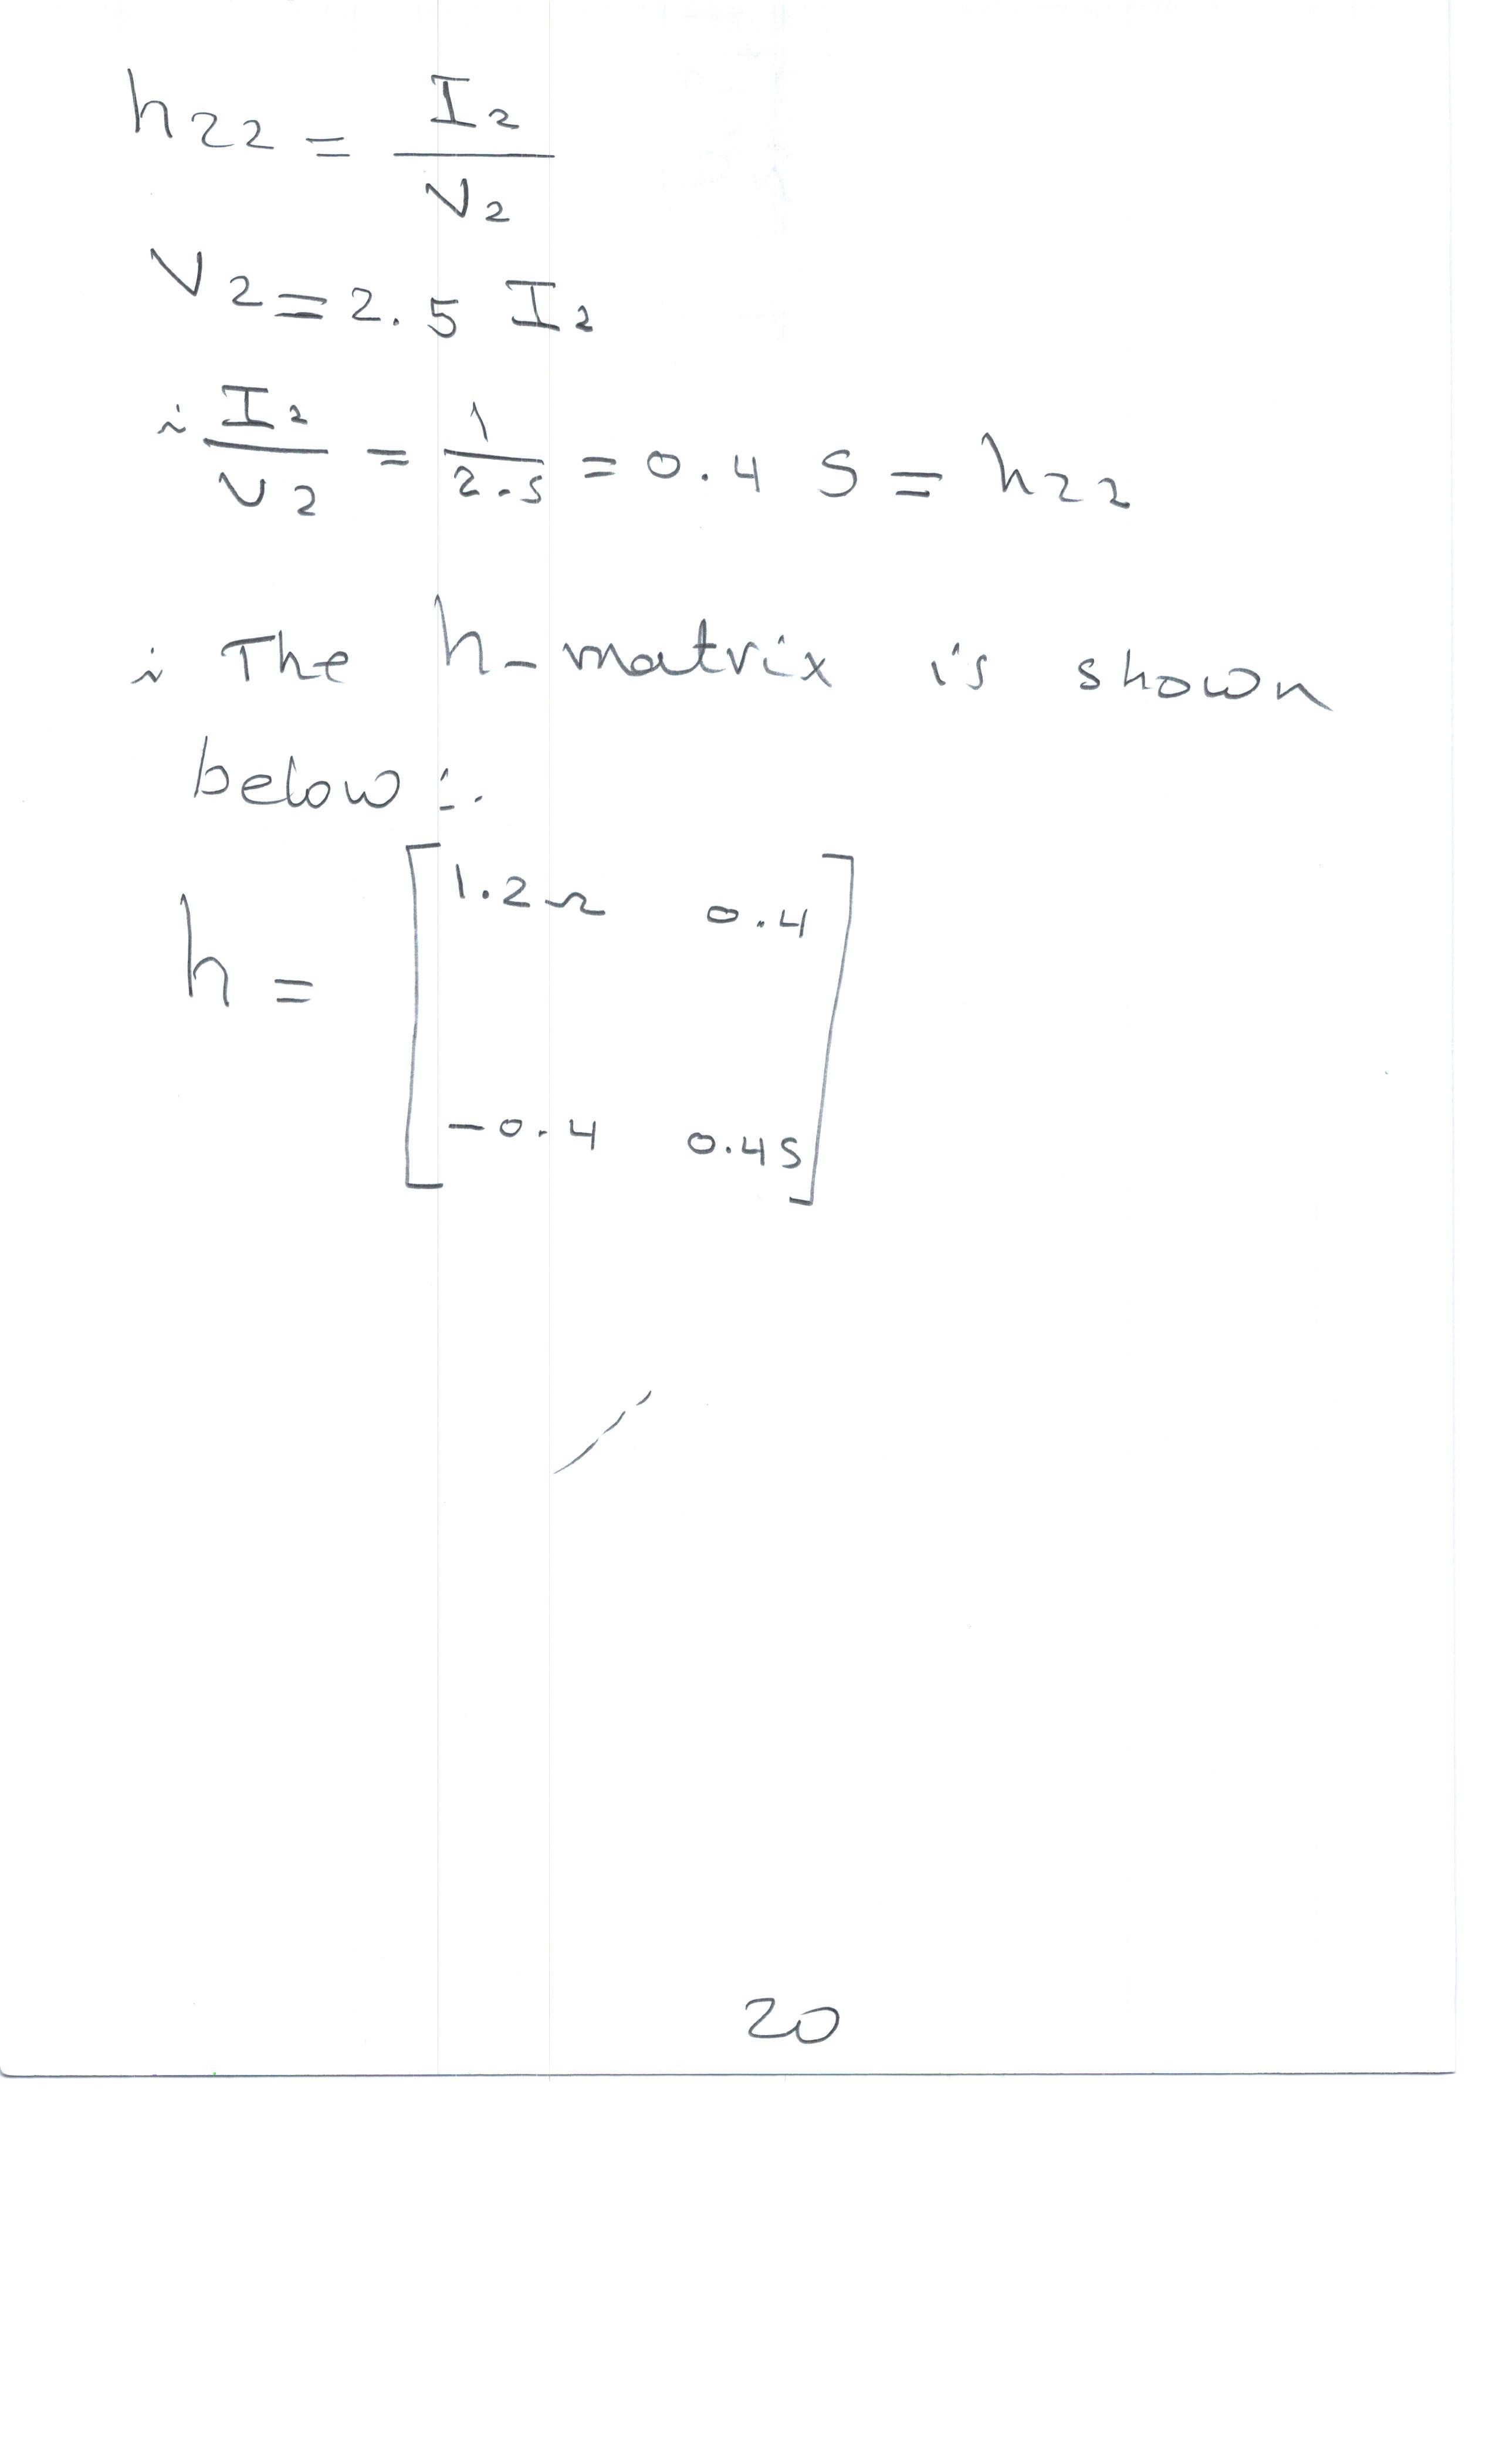 h22 = I2 / V2
V2 = 2.5 I2
∴ I2 / V2 = 1 / 2.5 = 0.4 S = h22
∴ The h-matrix is shown
below:-
h = [ 1.2Ω 0.4
-0.4 0.4S ]
20